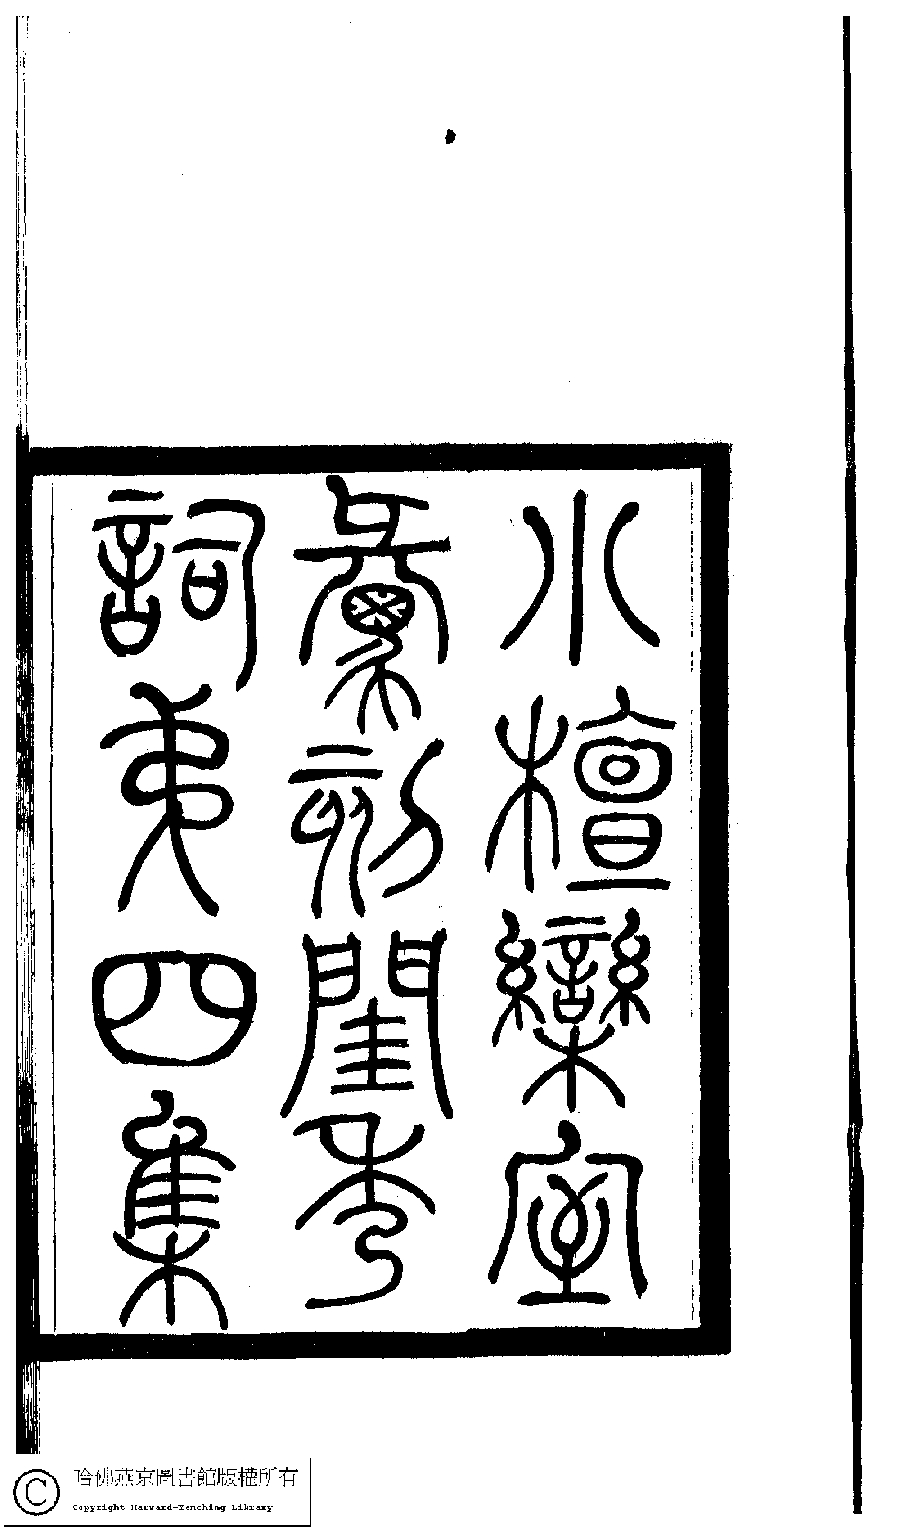 小檀欒室
彙刻閨秀
詞弟四集
哈佛燕京圖書館版權所有
Copyright Harvard-Yenching Library